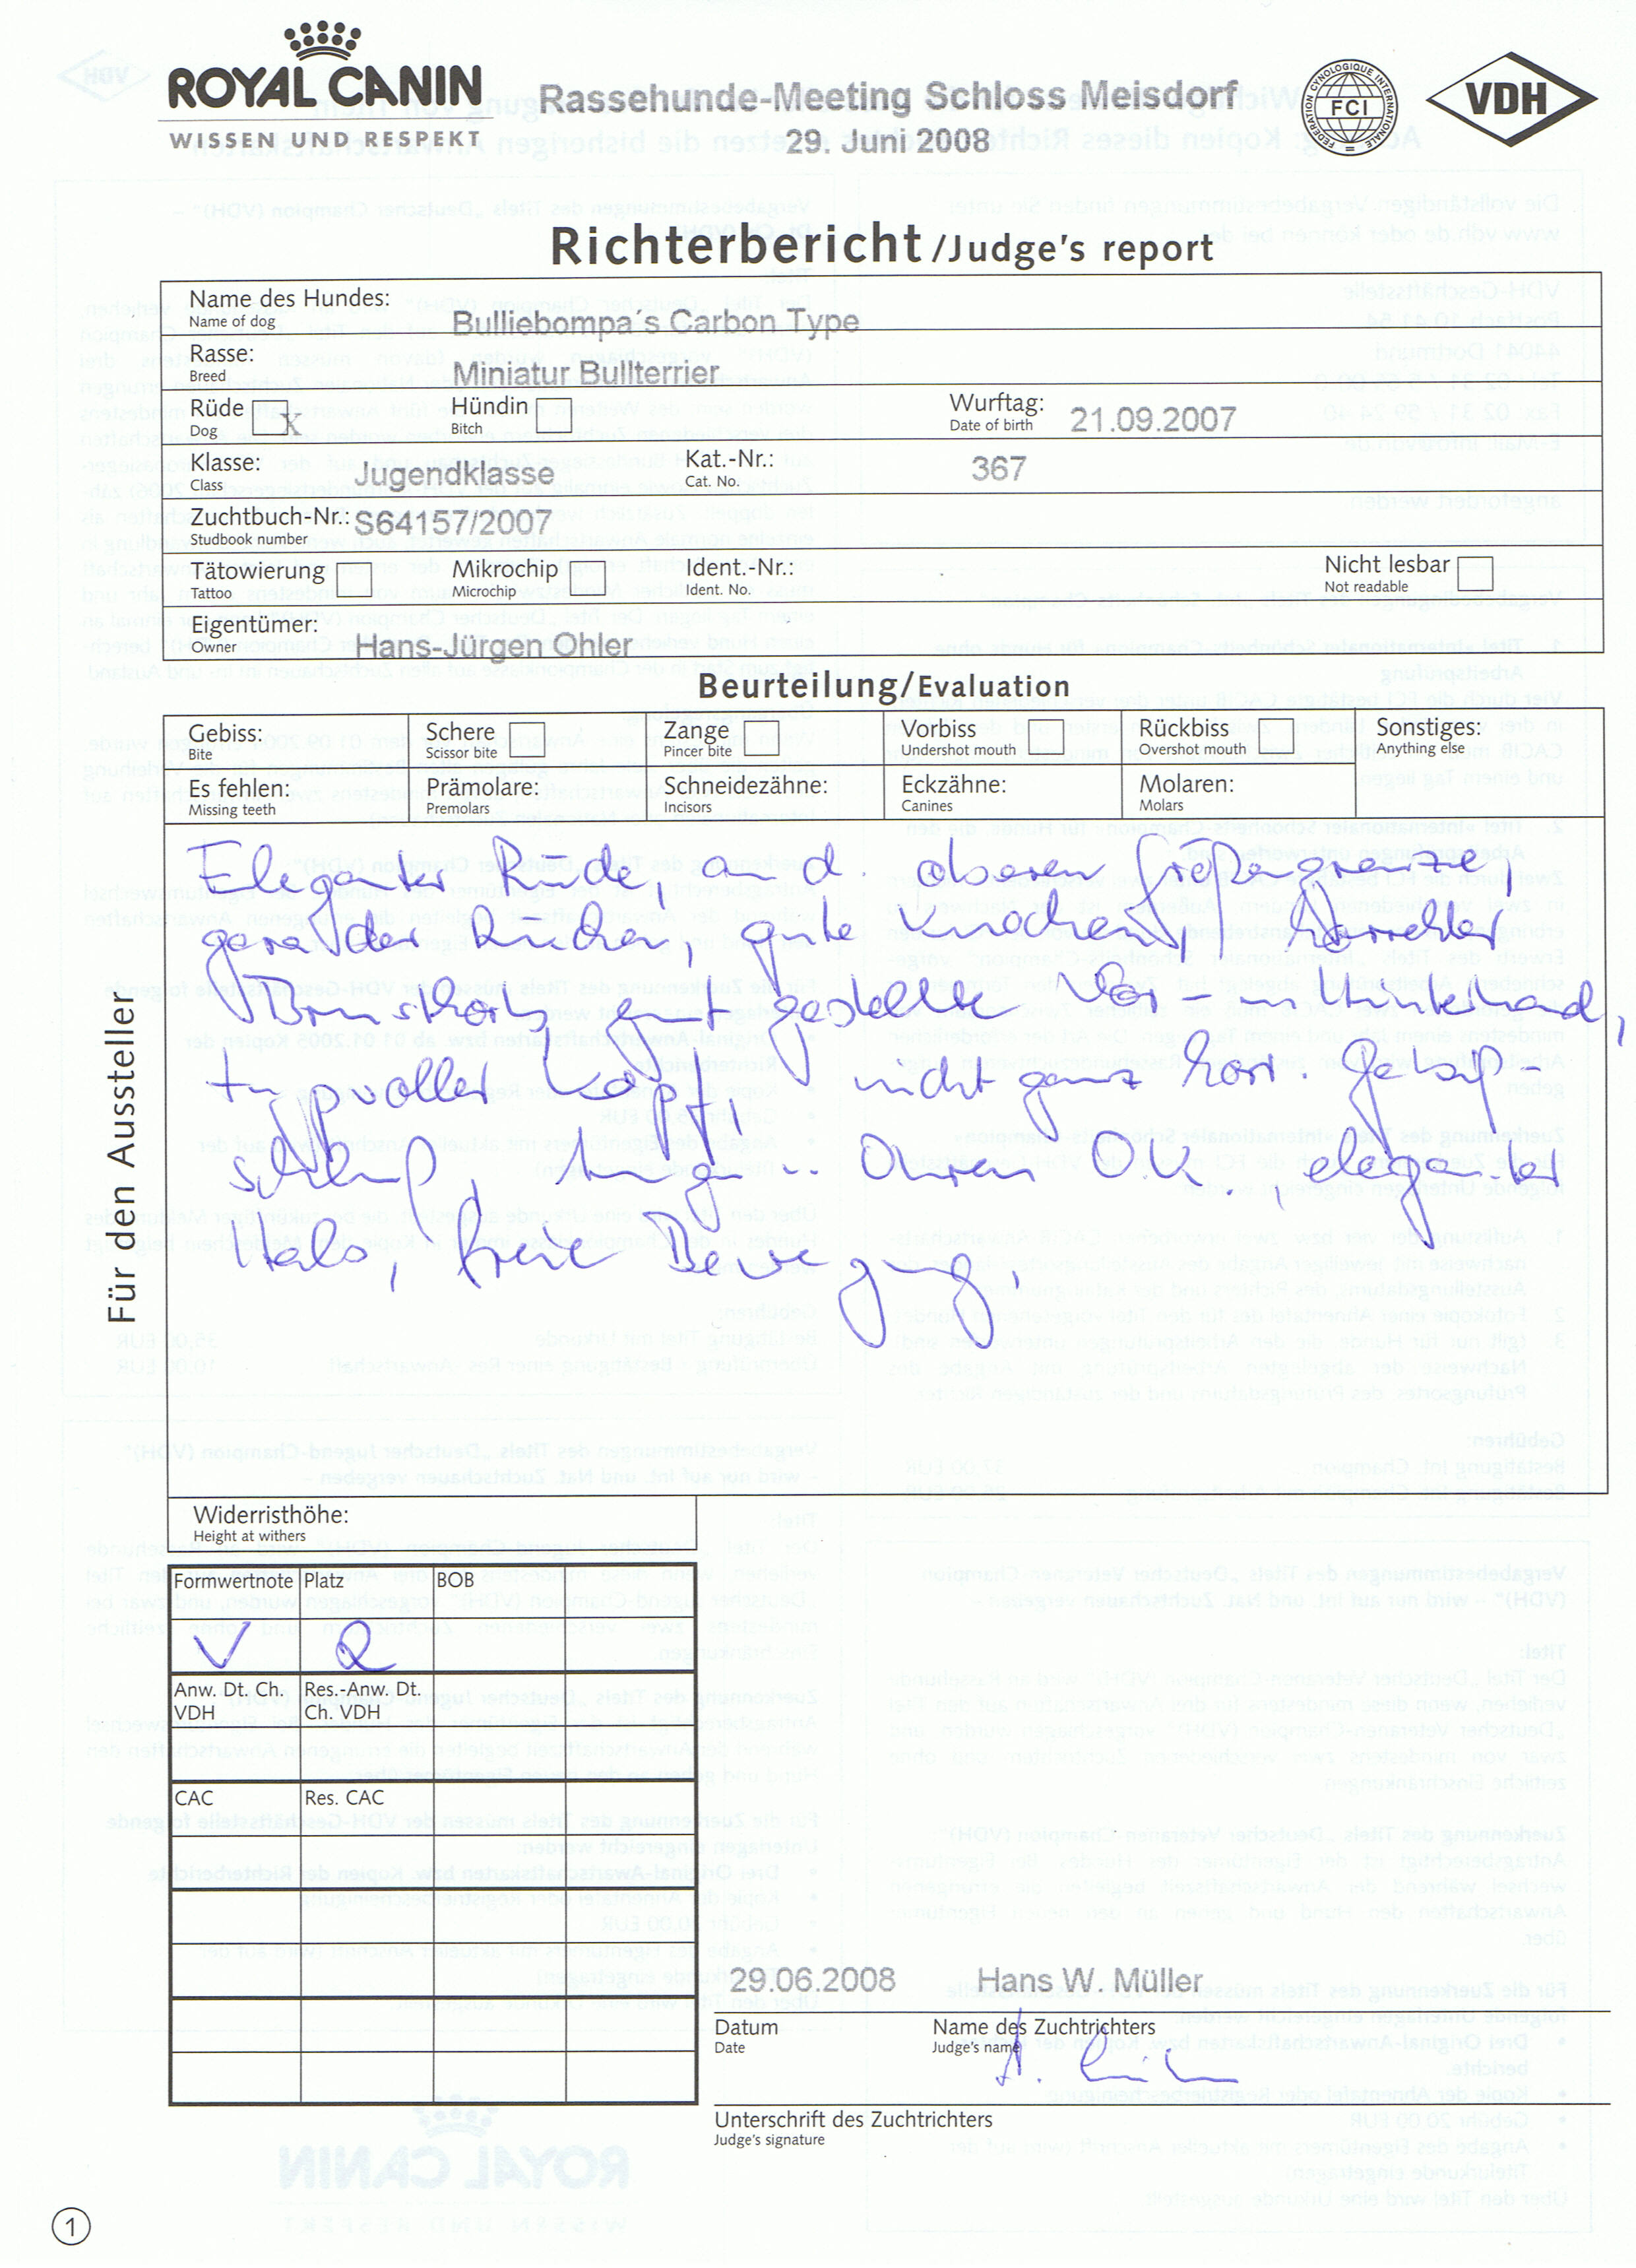 ROYAL CANIN
WISSEN UND RESPEKT
Rassehunde-Meeting Schloss Meisdorf
29. Juni 2008
FEDERATION CYNOLOGIQUE INTERNATIONALE
FCI
VDH
Richterbericht/Judge's report
Name des Hundes:
Name of dog
Bulliebompa´s Carbon Type
Rasse:
Breed
Miniatur Bullterrier
Rüde
Dog
X
Hündin
Bitch
Wurftag:
Date of birth
21.09.2007
Klasse:
Class
Jugendklasse
Kat.-Nr.:
Cat. No.
367
Zuchtbuch-Nr.:
Studbook number
S64157/2007
Tätowierung
Tattoo
Mikrochip
Microchip
Ident.-Nr.:
Ident. No.
Nicht lesbar
Not readable
Eigentümer:
Owner
Hans-Jürgen Ohler
Beurteilung/Evaluation
Gebiss:
Bite
Schere
Scissor bite
Zange
Pincer bite
Vorbiss
Undershot mouth
Rückbiss
Overshot mouth
Sonstiges:
Anything else
Es fehlen:
Missing teeth
Prämolare:
Premolars
Schneidezähne:
Incisors
Eckzähne:
Canines
Molaren:
Molars
Für den Aussteller
Eleganter Rüde, an d. oberen Größengrenze
gerader Rücken, gute Knochen, korrekter
gut gestellte Vor- u Hinterhand,
typvoller Kopf! nicht ganz korr. Gebiß-
schluß, Augen u. Ohren O.K., eleganter
Hals, freie Bewegung.
Widerristhöhe:
Height at withers
Formwertnote Platz BOB
V 2
Anw. Dt. Ch. VDH
Res.-Anw. Dt. Ch. VDH
CAC Res. CAC
29.06.2008 Hans W. Müller
Datum
Date
Name des Zuchtrichters
Judge's name
Unterschrift des Zuchtrichters
Judge's signature
1